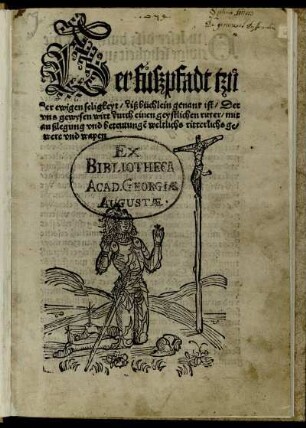 Der fůszpfadt tzů
der ewigen seligkeyt / diß büchlein genant ist / Der
vns gewysen wirt durch einen geystlichen ritter / mit
außlegung vnd beteutung weltlichs ritterlichs ge-
were vnd wapen
EX
BIBLIOTHECA
ACAD. GEORGIÆ
AUGUSTÆ.